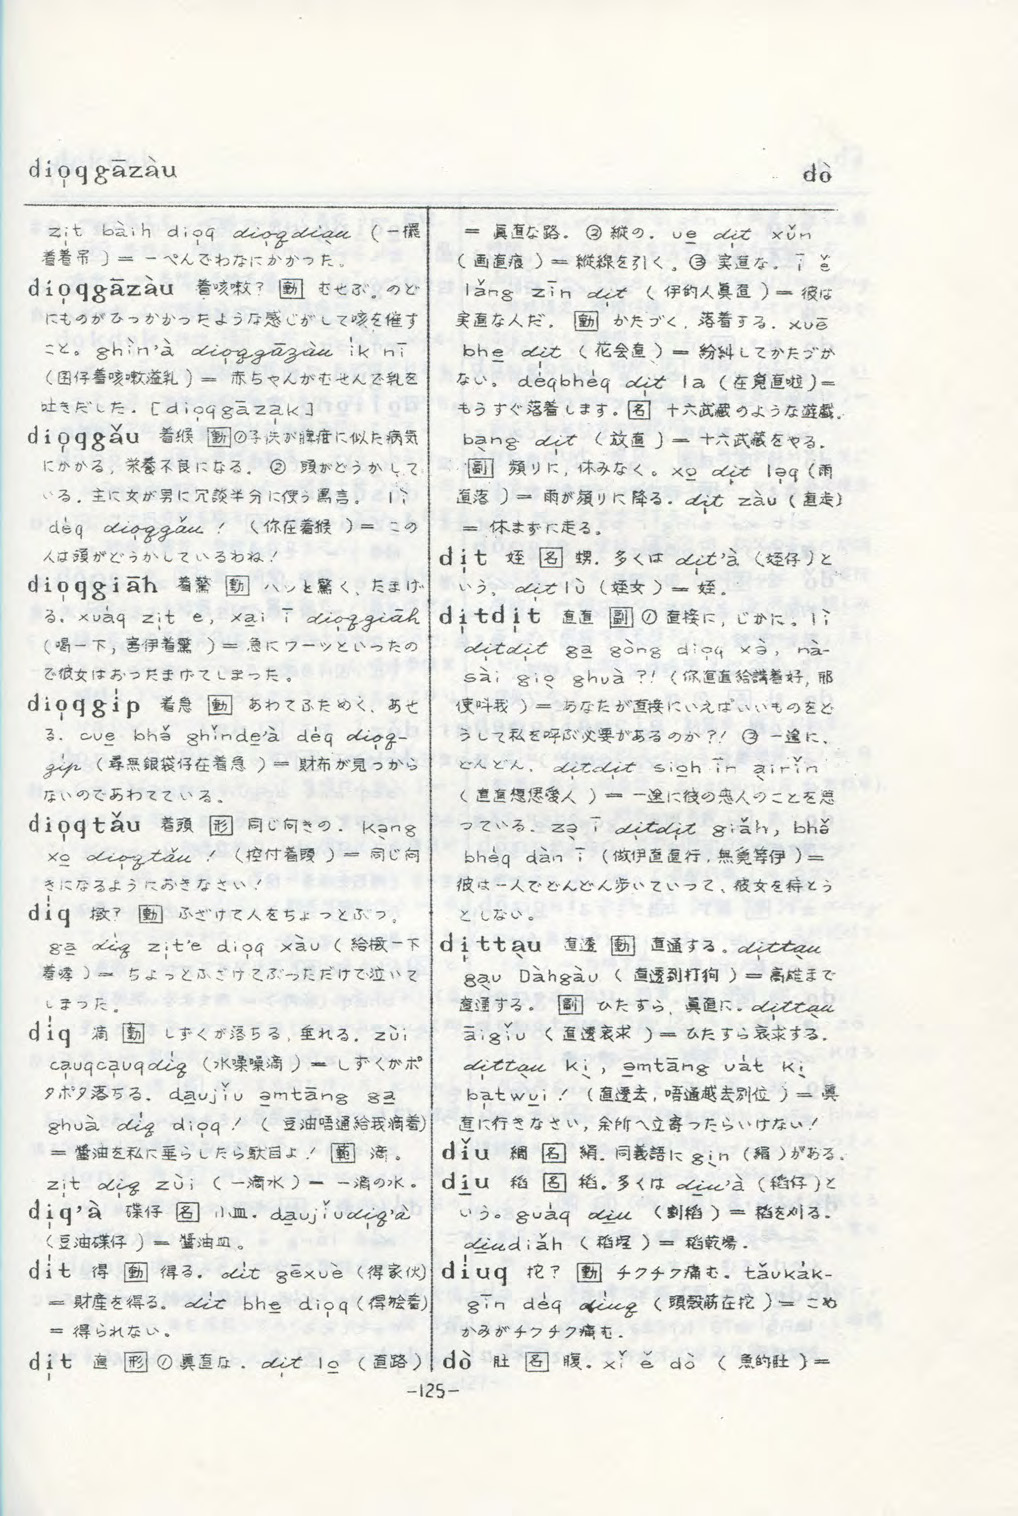 diọqgāzàu
dò
zịt bàih diọq diọqdiạu (一擺
着着吊)= 一ぺんでわなにかかった。
diọqgāzàu 着咳嗽? 動 むせぶ。のど
にものがひっかかったような感じがして咳を催す
こと。ghìn'à diọqgāzàu ik nī
(囝仔着咳嗽溢乳)= 赤ちゃんがむせんで乳を
吐きだした. [diọqgāzak]
diọqgǎu 着猴 動①子供が脾疳に似た病気
にかかる, 栄養不良になる. ② 頭がどうかして
いる. 主に女が男に冗談半分に使う罵言. lì
dèq diọqgǎu! (你在着猴)= この
人は頭がどうかしているわね!
diọqgiāh 着驚 動 ハッと驚く, たまげ
る. xuàq zịt e, xại ī diọqgiāh
(喝一下, 害伊着驚)= 急にワーッといったの
で彼女はおったまげてしまった。
diọqgip 着急 動 あわてふためく, あせ
る. cuē bhě ghǐnde'à dèq diọq-
gip (尋無銀袋仔在着急)= 財布が見つから
ないのであわてている。
diọqtǎu 着頭 形 同じ向きの. kạng
xọ diọqtǎu! (控付着頭)= 同じ向
きになるようにおきなさい!
diq 動 ふざけて人をちょっとぶつ。
gā diq zịt'e diọq xàu (給一下
着哮)= ちょっとふざけてぶっただけで泣いて
しまった。
diq 滴 動 しずくが落ちる, 垂れる. zùi
cạuqcạuqdiq (水噪噪滴)= しずくがポ
タポタ落ちる. dạujǐu ạmtāng gā
ghuà diq diọq! (豆油唔通給我滴着)
= 醬油を私に垂らしたら駄目よ! 滴。
zịt diq zùi (一滴水)= 一滴の水。
diq'à 碟仔 名 小皿. dạujǐudiq'à
(豆油碟仔)= 醬油皿。
dit 得 動 得る. dit gēxuè (得家伙)
= 財産を得る. dit bhē diọq (得獪着)
= 得られない。
dịt 直 形 ①眞直な. dịt lọ (直路)
= 眞直な路. ② 縦の. uē dịt xǔn
(画直痕)= 縦線を引く。③ 実直な. ī ě
lǎng zīn dịt (伊的人眞直)= 彼は
実直な人だ. 動 かたづく, 落着する. xuē
bhē dịt (花会直)= 紛糾してかたづか
ない。dèqbhèq dịt la (在覓直啦)=
もうすぐ落着します。名 十六武蔵のような遊戯.
bạng dịt (放直)= 十六武蔵をやる.
副 頻りに, 休みなく。xọ dịt lọq (雨
直落)= 雨が頻りに降る. dịt zàu (直走)
= 休まずに走る。
dịt 姪 名 甥. 多くは dịt'à (姪仔)と
いう。dịtlù (姪女)= 姪.
dịtdịt 直直 副 ① 直接に, じかに。lì
dịtdịt gā gòng diọq xà, nà-
sài giọ ghuà?! (你直直給講着好, 那
使叫我)= あなたが直接にいえばいいものをど
うして私を呼ぶ必要があるのか?! ② 一途に,
どんどん. dịtdịt siọh īn ạirǐn
(直直想愛人)= 一途に彼の恋人のことを思
っている. zạ ī dịtdịt giǎh, bhě
bhèq dàn ī (做伊直直行, 無覓等伊)=
彼は一人でどんどん歩いていって, 彼女を待とう
としない。
dịttạu 直透 動 直通する。dịttạu
gạu Dàhgàu (直透到打狗)= 高雄まで
直通する。副 ひたすら, 眞直に. dịttạu
āigǐu (直透哀求)= ひたすら哀求する.
dịttạu kị, ạmtāng uát kị
bạtwụi! (直透去, 唔通越去別位)= 眞
直に行きなさい, 余所へ立寄ったらいけない!
dǐu 綢 名 絹. 同義語に gịn (絹)がある.
dịu 稻 名 稻. 多くは dịu'à (稻仔)と
いう。guàq dịu (割稻)= 稻を刈る.
dịudiǎh (稻埕)= 稻乾場.
diuq 挖? 動 チクチク痛む. tǎukàk-
gīn dèq diuq (頭殼筋在挖)= こめ
かみがチクチク痛む.
dò 肚 名 腹. xǐ ě dò (魚的肚)=
-125-